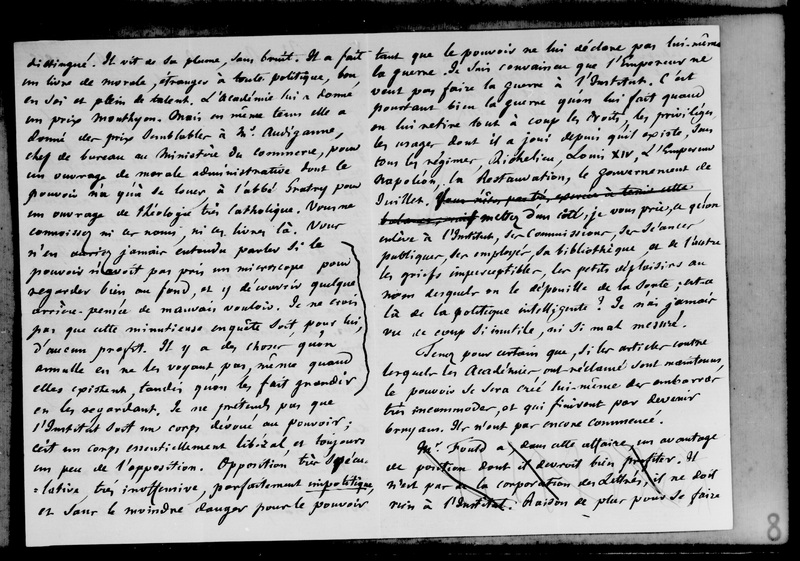 distingué. Il vit de sa plume, sans bruit. Il a fait
un livre de morale, étranger à toute politique, bon
en soi et plein de talent. L'Académie lui a donné
un prix Monthyon. Mais en même tems elle a
donné des prix semblables à Mr. Audiganne,
chef de bureau au Ministère du commerce, pour
un ouvrage de morale administrative dont le
pouvoir n'a qu'à se louer, à l'abbé Gratry pour
un ouvrage de théologie très catholique. Vous ne
connoissez ni ces noms, ni ces livres là. Vous
n'en auriez jamais entendu parler si le
pouvoir n'avoit pas pris un microscope pour
regarder bien au fond, et y découvrir quelque
arrière-pensée de mauvais vouloir. Je ne crois
pas que cette minutieuse enquête soit pour lui,
d'aucun profit. Il y a des choses qu'on
annulle en ne les voyant pas, même quand
elles existent, tandis qu'on les fait grandir
en les regardant. Je ne prétends pas que
l'Institut soit un corps dévoué au pouvoir;
c'est un corps essentiellement libéral, et toujours
un peu de l'opposition. Opposition très spécu-
-lative, très inoffensive, parfaitement impolitique,
et sans le moindre danger pour le pouvoir
tant que le pouvoir ne lui déclare pas lui-même
la guerre. Je suis convaincu que l'Empereur ne
veut pas faire la guerre à l'Institut. C'est
pourtant bien la guerre qu'on lui fait quand
on lui retire tout à coup les droits, les privilèges,
les usages dont il a joui depuis qu'il existe, sous
tous les régimes, Richelieu, Louis XIV, L'Empereur
Napoléon, la Restauration, le gouvernement de
Juillet. mettez d'un côté, je vous prie, ce qu'on
enlève à l'Institut, ses Commissions, ses séances
publiques, ses employés, sa bibliothèque, et de l'autre
les griefs imperceptibles, les petits déplaisirs au
nom desquels on le dépouille de la sorte; est-ce
là de la politique intelligente? Je n'ai jamais
vu de coup si inutile, ni si mal mesuré.
Tenez pour certain que, si les articles contre
lesquels les Académies ont réclamé sont maintenus,
le pouvoir se sera créé lui-même des embarras,
très incommodes, et qui finiront par devenir
bruyans. Ils n'ont pas encore commencé.
Mr. Fould a, dans cette affaire, un avantage
de position dont il devroit bien profiter. Il
n'est pas de la corporation des Lettrés, il ne doit
rien à l'Institut. Raison de plus pour se faire
8